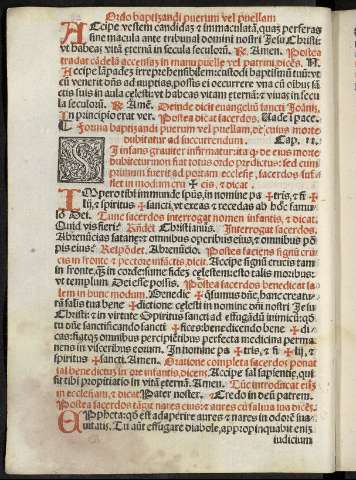 Ordo baptizandi puerum vel puellam
Accipe vestem candidā ⁊ immaculatā, quaz perferas
sine macula ante tribunal domini nostri Jesu Christi: vt
vt habeas vitā eternā in secula seculorū. ℟. Amen. Postea
tradat cādelā accensaz in manu puelle vel patrini, dicēs. ℣.
Accipe lāpadez irreprehensibilem: custodi baptismū tuū: vt
cū venerit dn̄s ad nuptias, possis ei occurrere vna cū oībus sā-
ctis suis in aula celesti: vt habeas vitam eternā: ⁊ viuas in secu
la seculorū. ℟. Amē. Deinde dicit euangeliū sancti Joānis,
In principio erat ver. Postea dicat sacerdos. Uade ī pace.
Forma baptizandi puerum vel puellam, de cuius morte
dubitatur ad succurrendum. Cap. ij.
SI infans grauiter infirmatur ita ꝙ de eius morte
dubitetur non fiat totus ordo predictus: sed cum
primum fuerit ad portam ecclesie, sacerdos suf-
flet in modum cru ✠ cis, ⁊ dicat.
Impero tibi immunde spūs, in nomine pa ✠ tris, ⁊ fi ✠
lij, ⁊ spiritus ✠ sancti, vt exeas ⁊ recedas ab hoc famu-
lo Dei. Tunc sacerdos interrogat nomen infantis, ⁊ dicat.
Quid vis fieri? Rn̄det Christianus. Interrogat sacerdos.
Abrenūcias satane: ⁊ omnibus operibus eius, ⁊ omnibus pō-
pis eius? Respōdet, Abrenūcio. Postea faciens signū cru-
cis in fronte ⁊ pectore infātis, dicit. Accipe signū crucis tam
in fronte, ꝙ̄ in corde: sume fidez celestem: esto talis moribus:
vt templum Dei esse possis. Postea sacerdos benedicat sa-
lem in hunc modum, Benedic ✠ dn̄e hanc creatu-
rā salis tua bene ✠ dictione celesti in nomine dn̄i nostri Jesu
Christi: ⁊ in virtute Spiritus sancti ad effugādū inimicū: qd̄
tu dn̄e sanctificando sancti ✠ fices: benedicendo bene ✠ di-
cas: fiatqȝ omnibus percipiētibus perfecta medicina perma-
nens in visceribus eorum. In nomine pa ✠ tris, ⁊ fi ✠ lij, ⁊
spiritus ✠ sancti. Amen. Oratione completa sacerdos ponat
sal benedictuȝ in ore infantis, dicens. Accipe sal sapientie, qui
sit tibi propitiatio in vitā eternā. Amen. Tūc introducat eūz
in ecclesiam, ⁊ dicat Pater noster. ✠ Credo in deū patrem.
Postea sacerdos tāgit nares eius: ⁊ aures cū saliua sua dicēs.
Eppheta: qd̄ est adaperire aures ⁊ nares in odorē sua-
uitatis. Tu aūt effugare diabole, appropinquabit enīȝ
iudicium